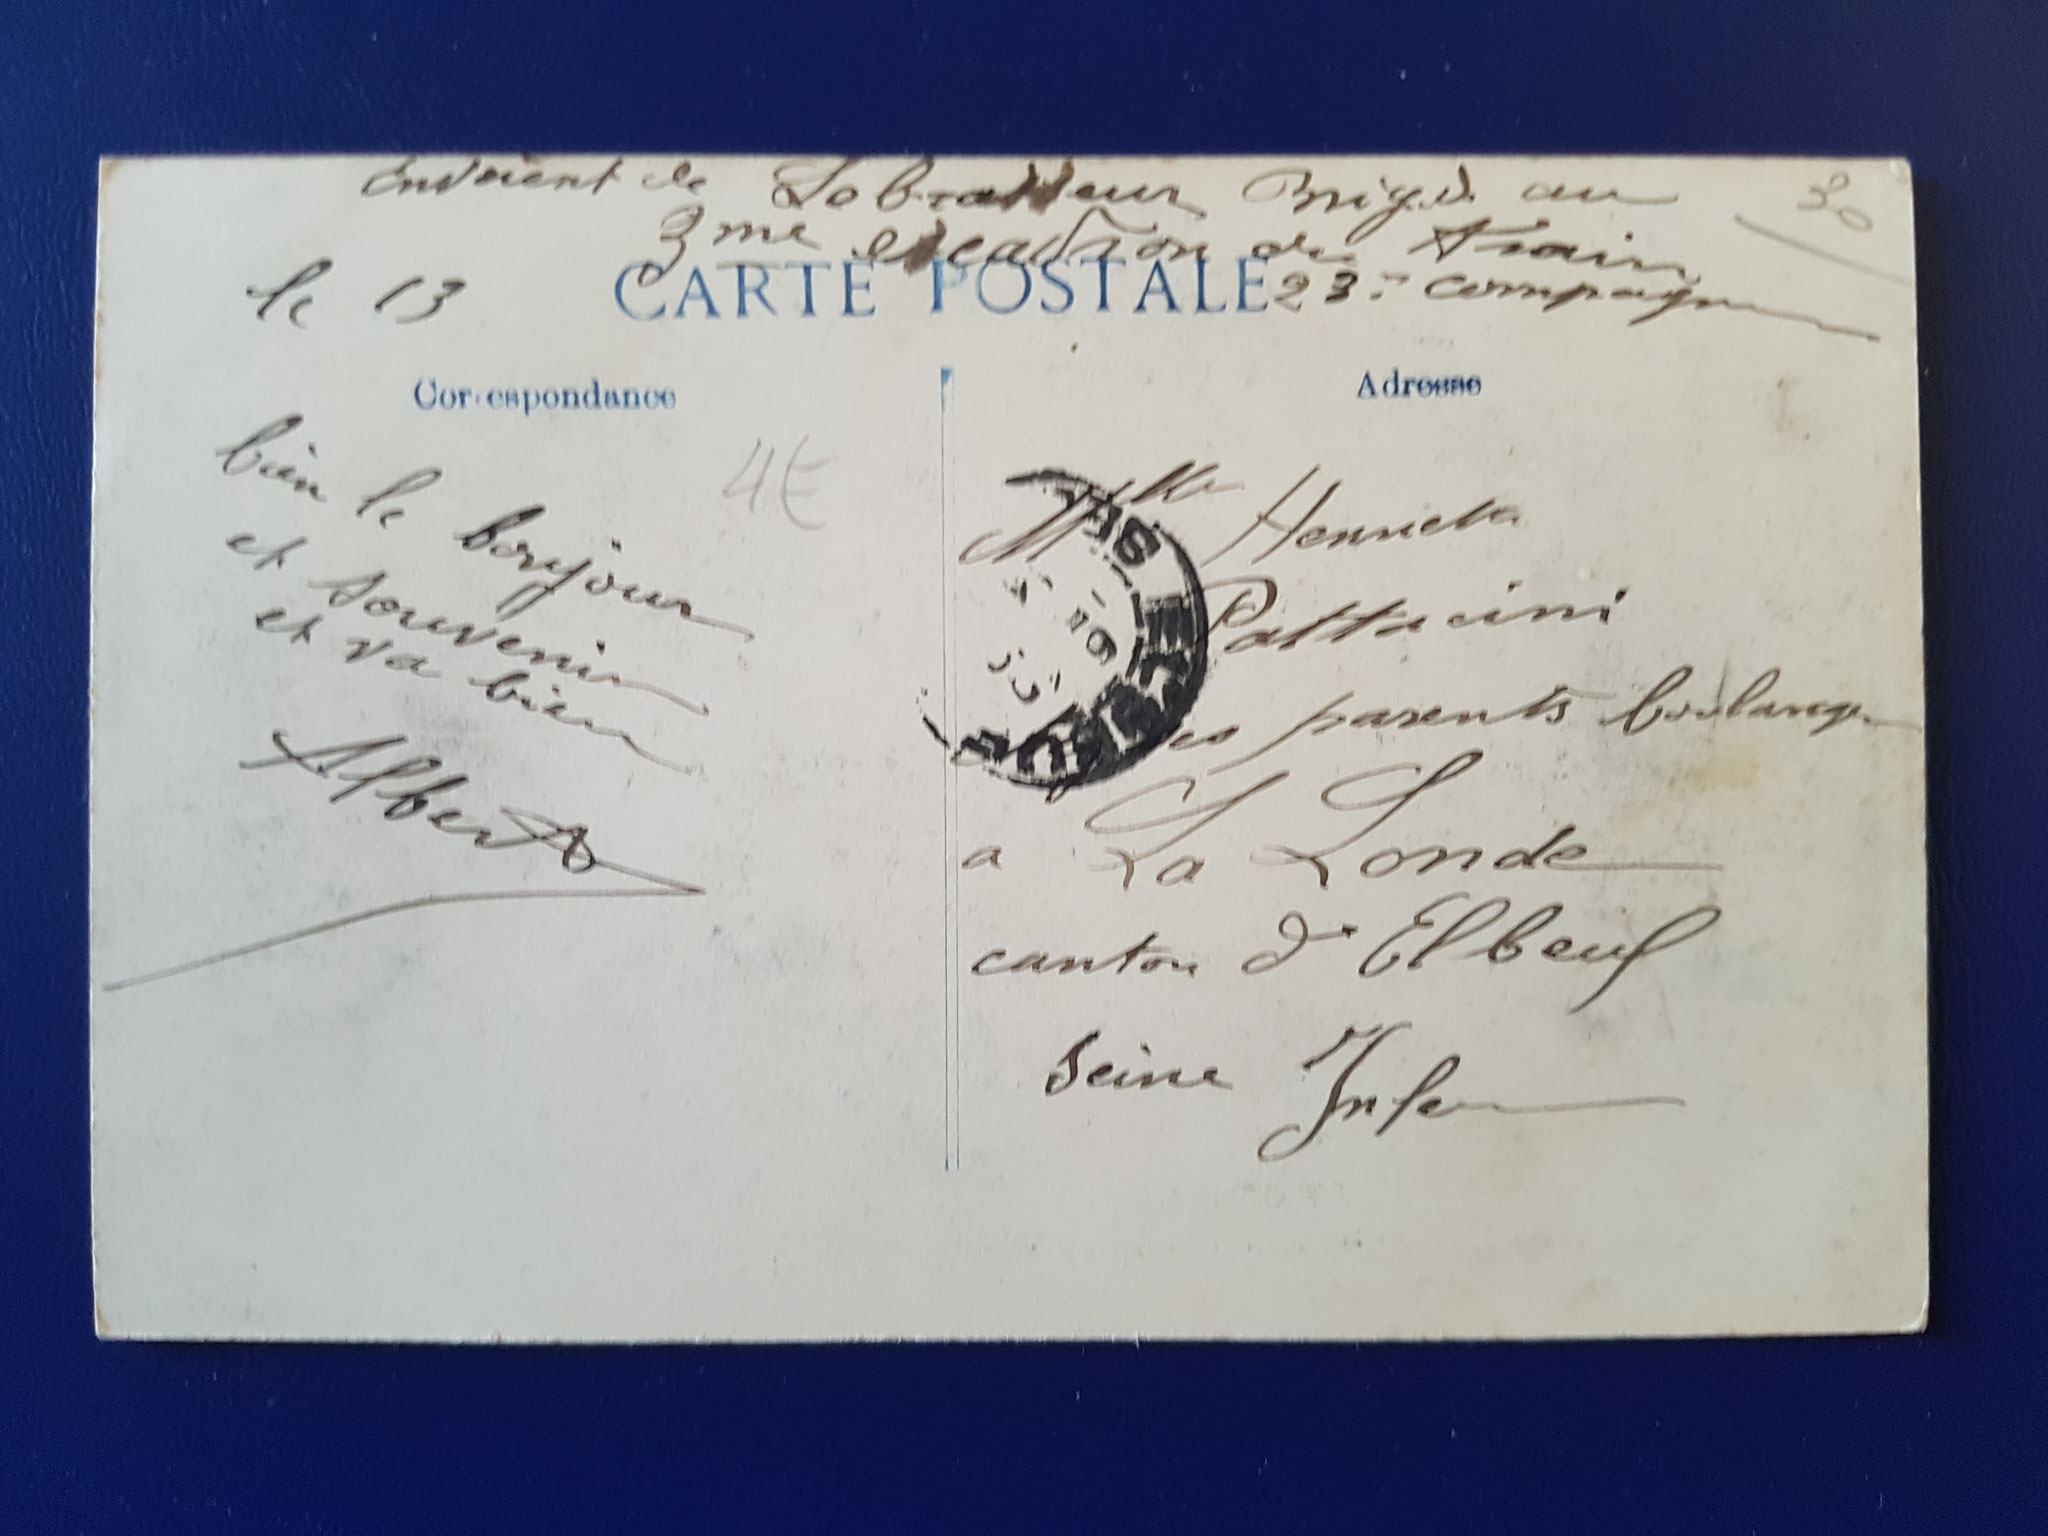 Envoient de Lebrasseur Brigd. au
3me escadron du train
23e compagnie
30
CARTE POSTALE
le 13
Correspondance
Adresse
4€
bien le bonjour
et souvenir
et va bien
Albert
Mlle Henriette
Pattucini
ses parents boulanger
a La Londe
canton d'Elbeuf
Seine Infer